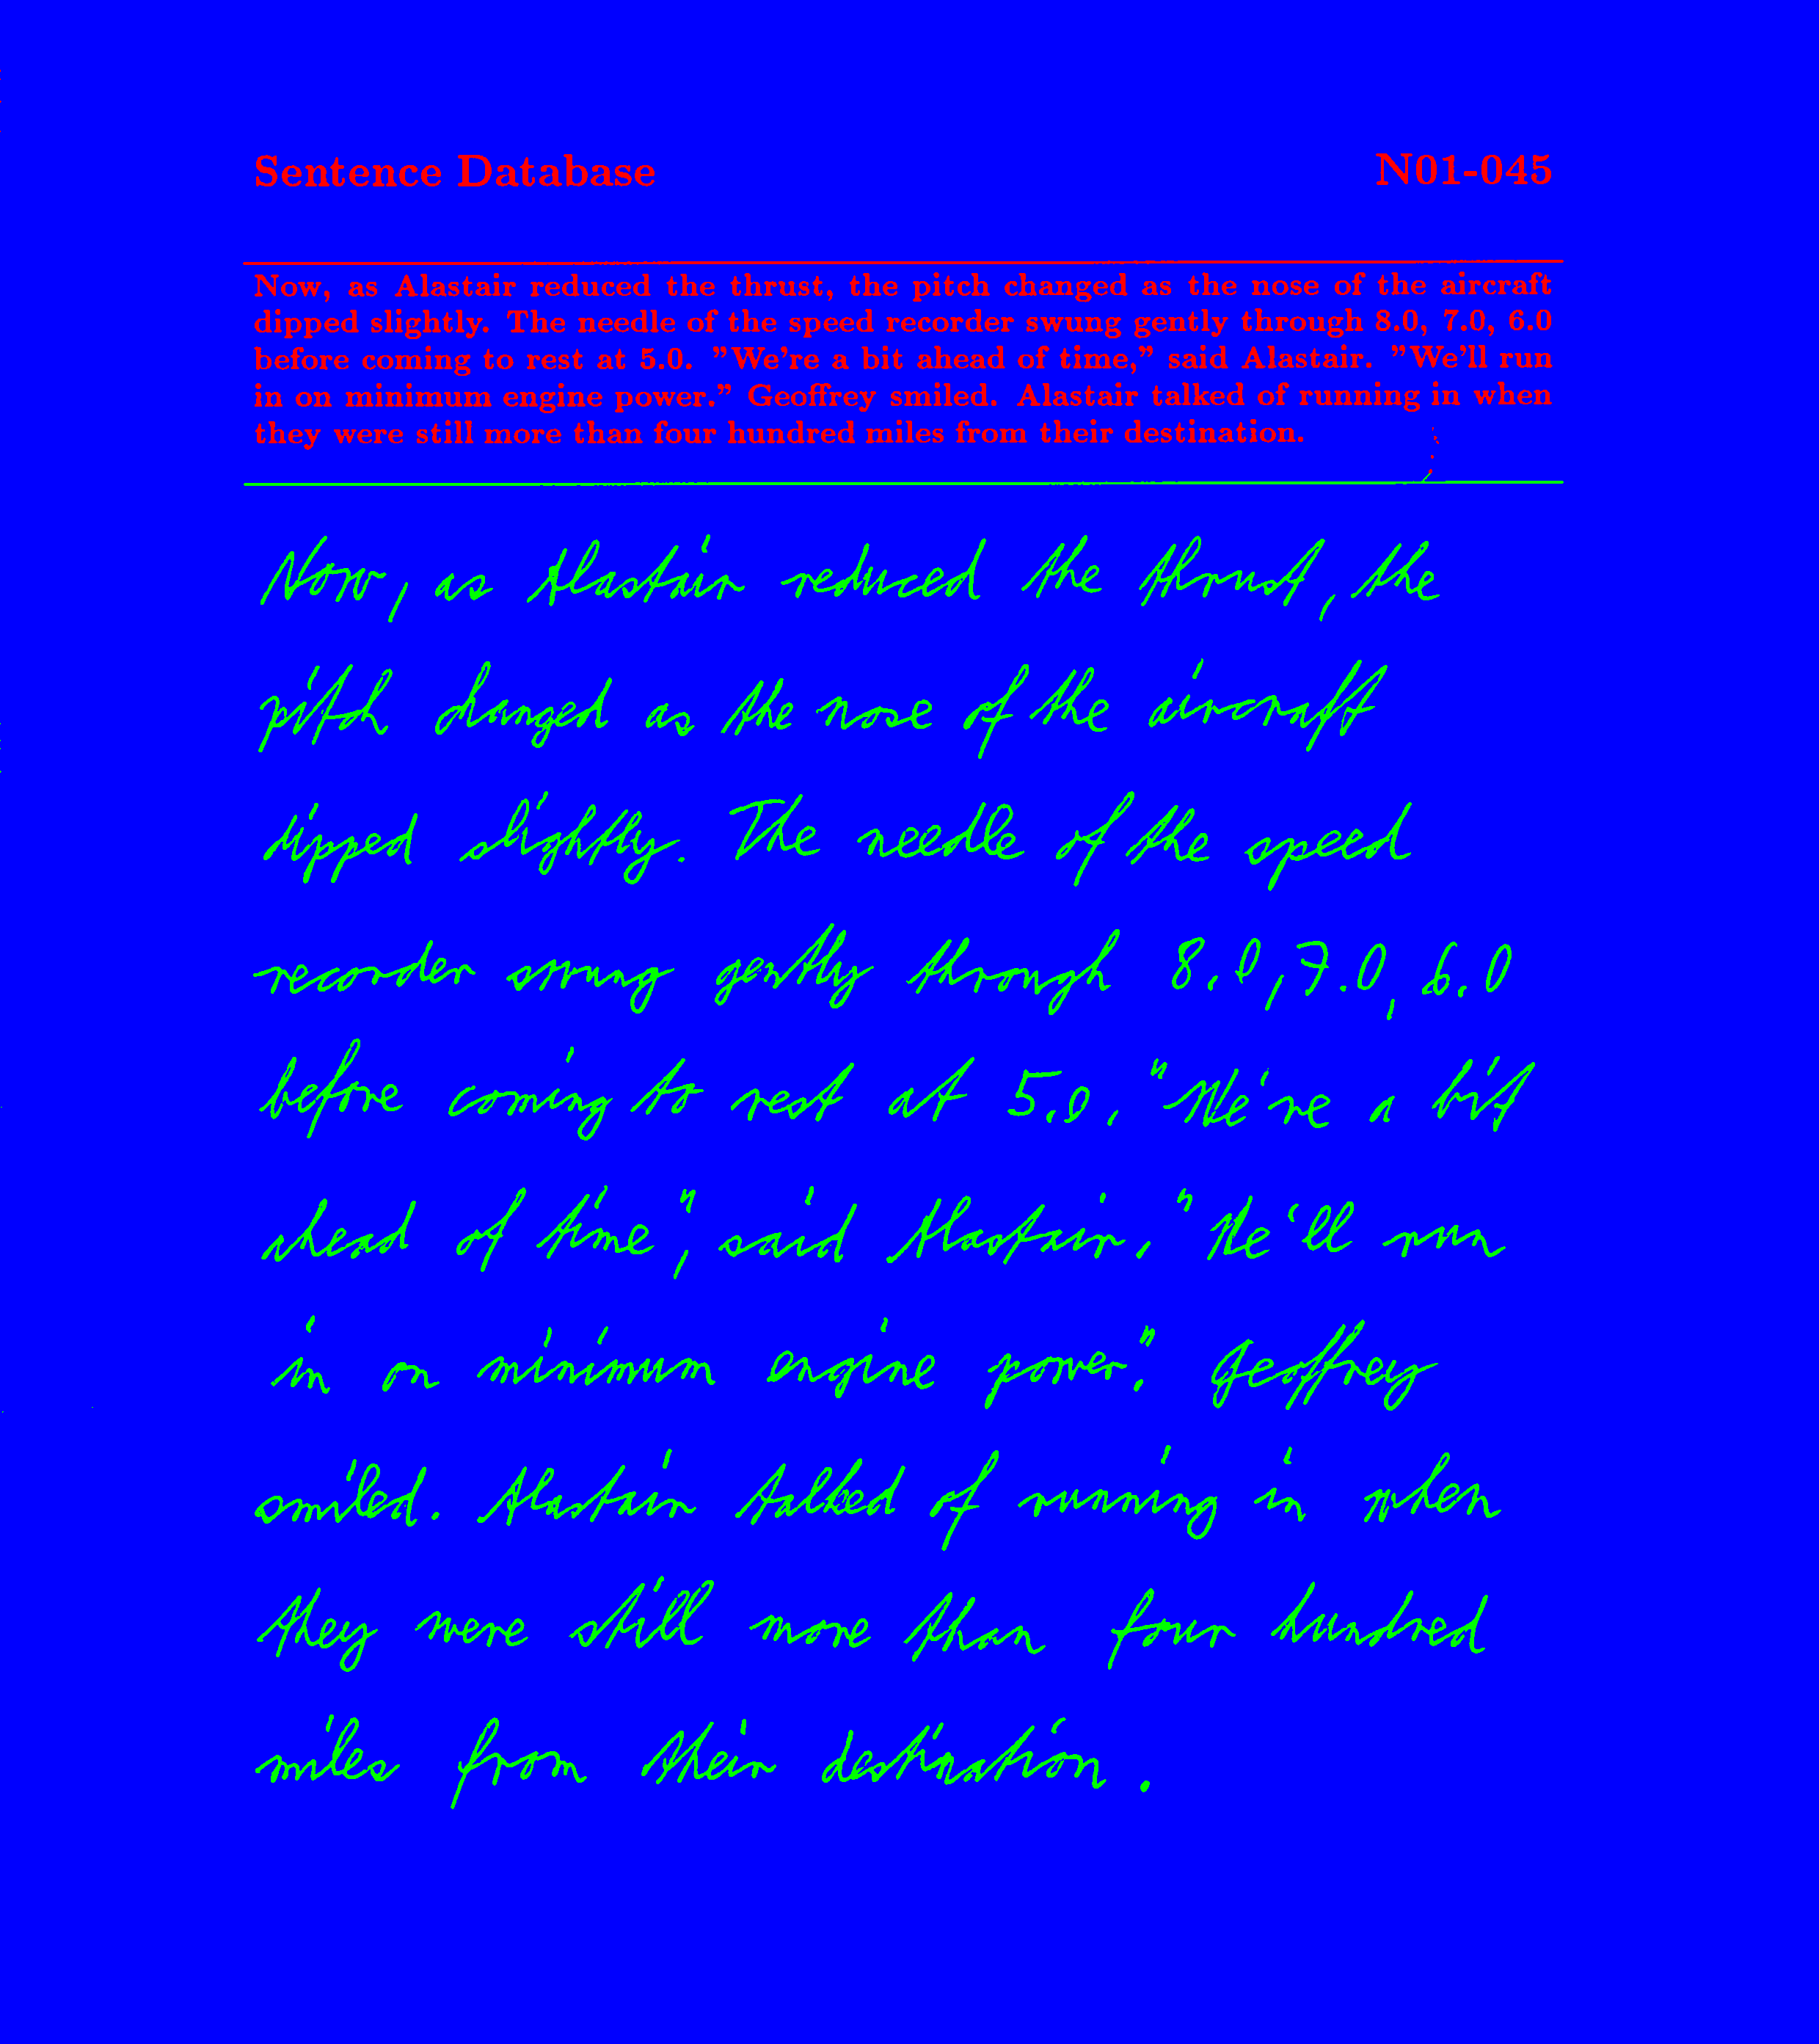 Sentence Database N01-045
Now, as Alastair reduced the thrust, the pitch changed as the nose of the aircraft
dipped slightly. The needle of the speed recorder swung gently through 8.0, 7.0, 6.0
before coming to rest at 5.0. "We're a bit ahead of time," said Alastair. "We'll run
in on minimum engine power." Geoffrey smiled. Alastair talked of running in when
they were still more than four hundred miles from their destination.
Now, as Alastair reduced the thrust, the
pitch changed as the nose of the aircraft
dipped slightly. The needle of the speed
recorder swung gently through 8.0, 7.0, 6.0
before coming to rest at 5.0. "We're a bit
ahead of time", said Alastair. "We'll run
in on minimum engine power". Geoffrey
smiled. Alastair talked of running in when
they were still more than four hundred
miles from their destination.